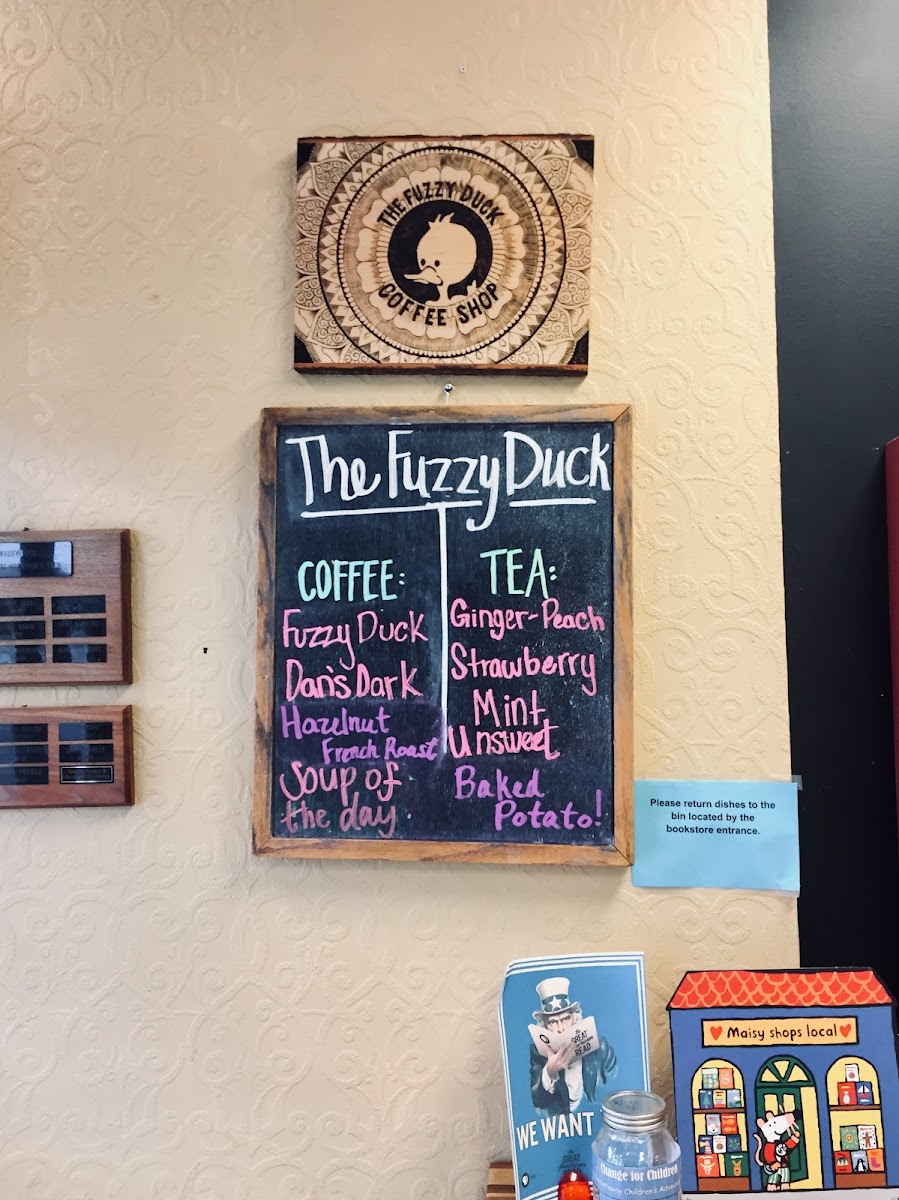 THE FUZZY DUCK
COFFEE SHOP
The Fuzzy Duck
COFFEE:
Fuzzy Duck
Dan's Dark
Hazelnut
French Roast
Soup of
the day
TEA:
Ginger-Peach
Strawberry
Mint
Unsweet
Baked
Potato!
Please return dishes to the
bin located by the
bookstore entrance.
The
GREAT
READ
WE WANT
Maisy shops local
Change for Children
Children's